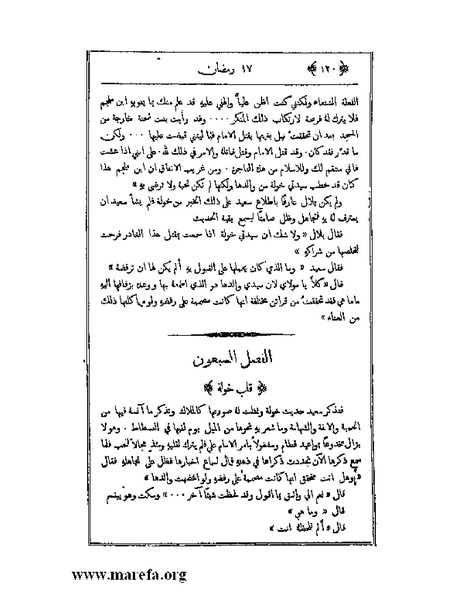 ﴿ ١٢٠ ﴾ ١٧ رمضان
الفعلة الشنعاء ولكني كنت اظن علياً والهني عليه قد علم منك بما ينويه ابن ملجم
فلا يترك له فرصة لارتكاب ذلك المنكر ٠٠٠ وقد رأيت بنت شحنة خارجة من
المسجد بعد ان تحققت نيل بغيتها بقتل الامام فيا ليتني قبضت عليها ٠٠٠ ولكن
ما قدر فقد كان. وقد قتل الامام وقتل قاتله والامر في ذلك لله. على انني اذا عشت
فاني منتقم لك وللاسلام من هذه الفاجرة. ومن غريب الاتفاق ان ابن ملجم هذا
كان قد خطب سيدتي خولة من والدها ولكنها لم تكن تحبه ولا ترضى به »
ولم يكن بلال عارفاً باطلاع سعيد على ذلك الخبر من خولة فلم يشأ سعيد ان
يعترف له به فتجاهل وظل صامتاً ليسمع بقية الحديث
فقال بلال « ولا شك ان سيدتي خولة اذا سمعت بقتل هذا الغادر فرحت
لتخلصها من شراكه »
فقال سعيد « وما الذي كان يحملها على القبول به ألم يكن لها ان ترفضه »
قال « كلاَّ يا مولاي لان سيدي والدها هو الذي بها ووعده بزفافها اليه
اما هي فقد تحققت من قرائن مختلفة انها كانت مصممة على رفضه ولو مهما كلفها ذلك
من العناء »
الفصل السبعون
﴿ قلب خولة ﴾
فتذكر سعيد حديث خولة وتمثلت له صورتها كالملاك وتذكر ما آنسه فيها من
الحمية والانفة والشهامة وما شعر به نحوها من الميل يوم لقيها في الفسطاط. وهو لا
يزال مخدوعاً بمواعيد قطام ومشغولاً بامر الامام علي فلم يترك لقلبه يومئذ مجالاً للحب فلما
سمع ذكرها الآن تجددت ذكراها في ذهنه فمال لسماع اخبارها فظل على تجاهله فقال
« وهل انت محقق انها كانت مصممة على رفضه ولو اغضبت والدها »
قال « نعم اني واثق بما اقول وقد لحظت شيئاً آخر ٠٠٠ » وسكت وهو يبتسم
قال « وما هو »
قال « ألم تلحظه انت »
www.marefa.org